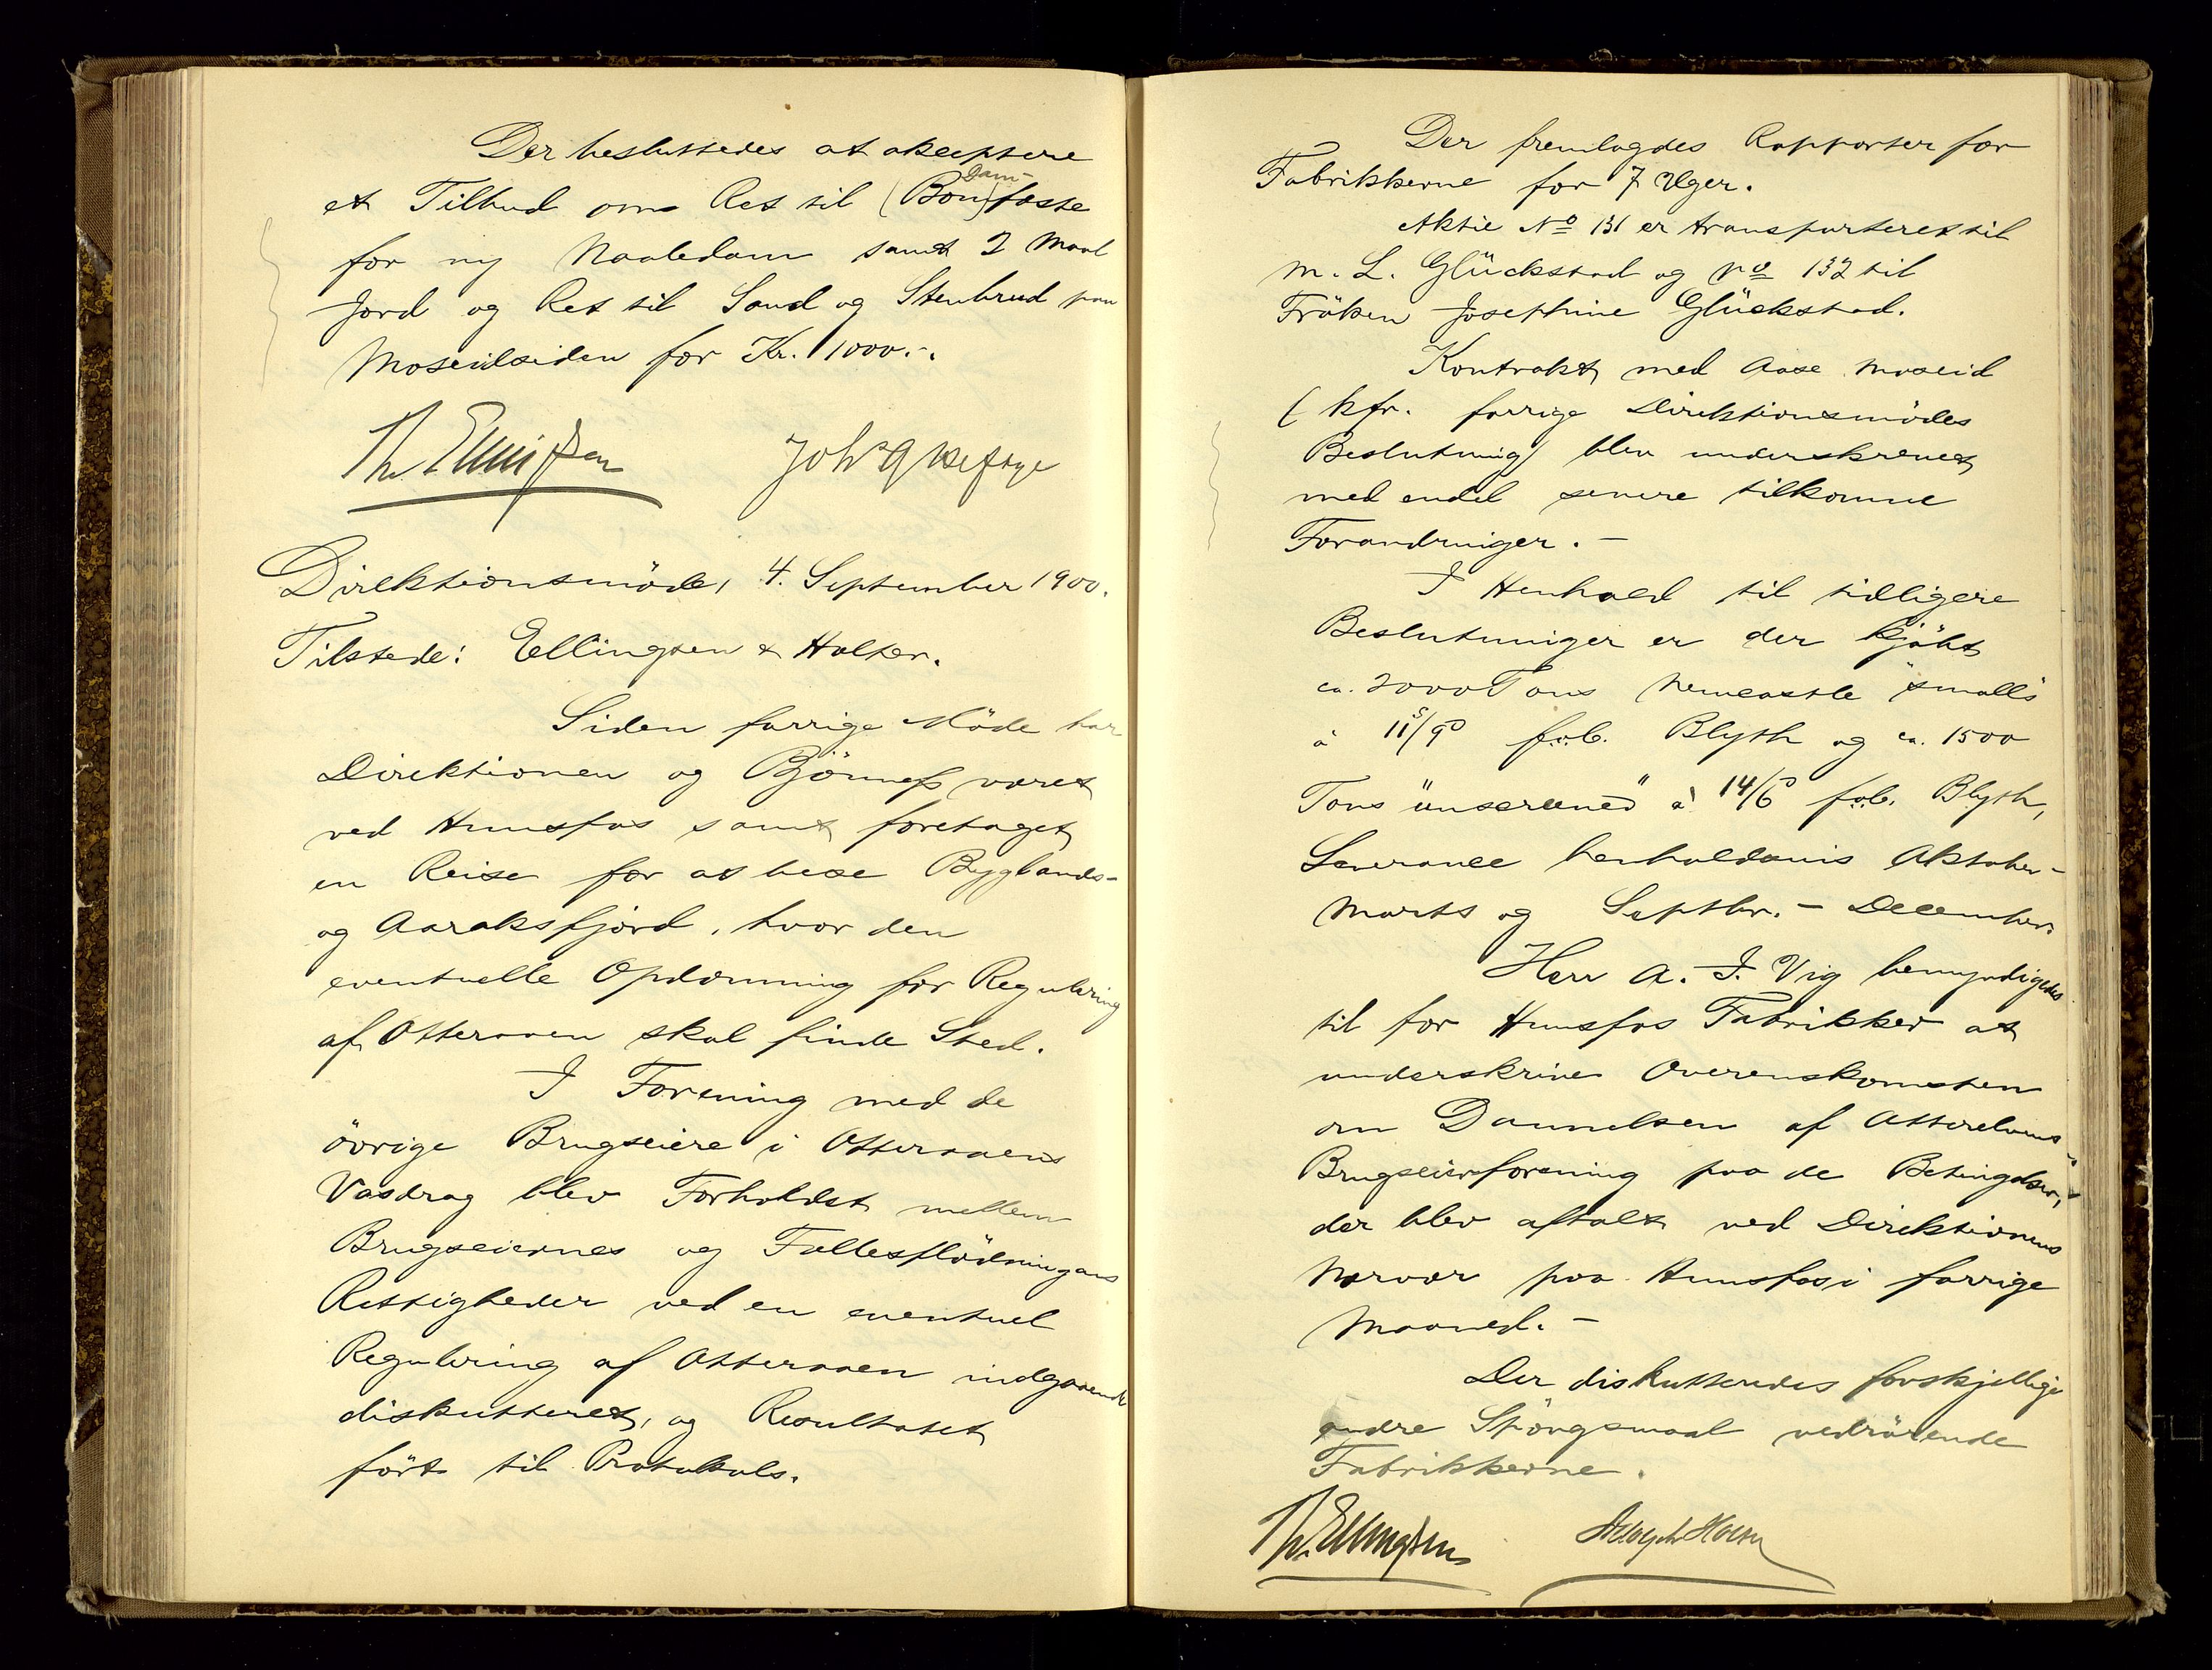 Der besluttedes at akseptere
et Tilbud om Ret til (Bom) Dam-fæste
for ny Naaledam samt 2 Maal
Jord og Ret til Sand og Stenbrud paa
Moseidsiden for Kr. 1000.-.
Th. Ellingsen
Direktionsmöde, 4. September 1900.
Tilstede: Ellingsen & Holter.
Siden forrige Möde har
Direktionen og Björness været
ved Hunsfos samt foretaget
en Reise for at bese Byglands-
og Aaraksfjord, hvor den
eventuelle Opdæmning for Regulering
af Otteraaen skal finde Sted.
I Forening med de
övrige Brugseiere i Otteraaens
Vasdrag blev Forholdet mellem
Brugseiernes og Fællesflödningens
Rettigheder ved en eventuel
Regulering af Otteraaen indgaaende
diskutteret, og Resultatet
fört til Protokols.
Der fremlagdes Rapporter for
Fabrikkerne for 7 Uger.
Aktie No 131 er transporteret til
M. L. Glückstad og No 132 til
Fröken Josephine Glückstad.
Kontrakt med Aase Moseid
(kfr. forrige Direktionsmödes
Beslutning) blev underskrevet
med endel senere tilkomne
Forandringer. -
I Henhold til tidligere
Beslutninger er der kjöbt
ca. 2000 Tons Newcastle "smalls"
à 11s/9D f.o.b. Blyth og ca. 1500
Tons "unscreened" à 14/6D f.o.b. Blyth,
Leverance henholdsvis Oktober-
Marts og Septbr. - December.
Herr A. I. Vig bemyndigedes
til for Hunsfos Fabrikker at
underskrive Overenskomsten
om Dannelsen af "Otterelvens
Brugseierforening" paa de Betingelser,
der blev aftalt ved Direktionens
Nærvær paa Hunsfos i forrige
Maaned. -
Der diskutteredes forskjellige
andre Spörgsmaal vedrörende
Fabrikkerne.
Th. Ellingsen Adolph Holter